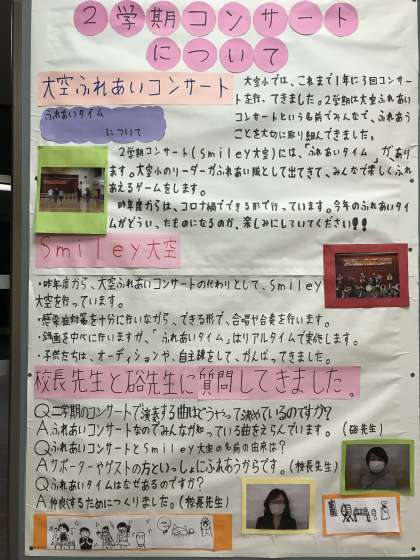 2学期コンサート
について
大空ふれあいコンサート
大空小では、これまで1年に3回コンサー
トを行ってきました。2学期は大空ふれあい
コンサートという名前でみんなで、ふれあう
ことを大切に取り組んできました。
ふれあいタイム
について
2学期コンサート(Smiley大空)には、「ふれあいタイム」があり
ます。大空小のリーダーがふれあい隊として出てきて、みんなで楽しくふれ
あえるゲームをします。
昨年度からは、コロナ禍でできる形で行っています。今年のふれあいタイ
ムがどういったものになるのか、楽しみにしていてください!!
Smiley大空
・昨年度から、大空ふれあいコンサートの代わりとして、Smiley
大空を行っています。
・感染症対策を十分に行いながら、できる形で、合唱や合奏を行います。
・録画を中心に行いますが、「ふれあいタイム」はリアルタイムで実施します。
・子供たちは、オーディションや、自主練をして、がんばってきました。
校長先生と硲先生に質問してきました。
Q二学期のコンサートで演そうする曲はどうやって決めているのですか?
Aふれあいコンサートなのでみんなが知っている曲をえらんでいます。(硲先生)
QふれあいコンサートとSmiley大空の名前の由来は?
Aサポーターやゲストの方といっしょにふれあうからです。(校長先生)
Qふれあいタイムはなぜあるのですか?
A仲良くするためにつくりました。(校長先生)